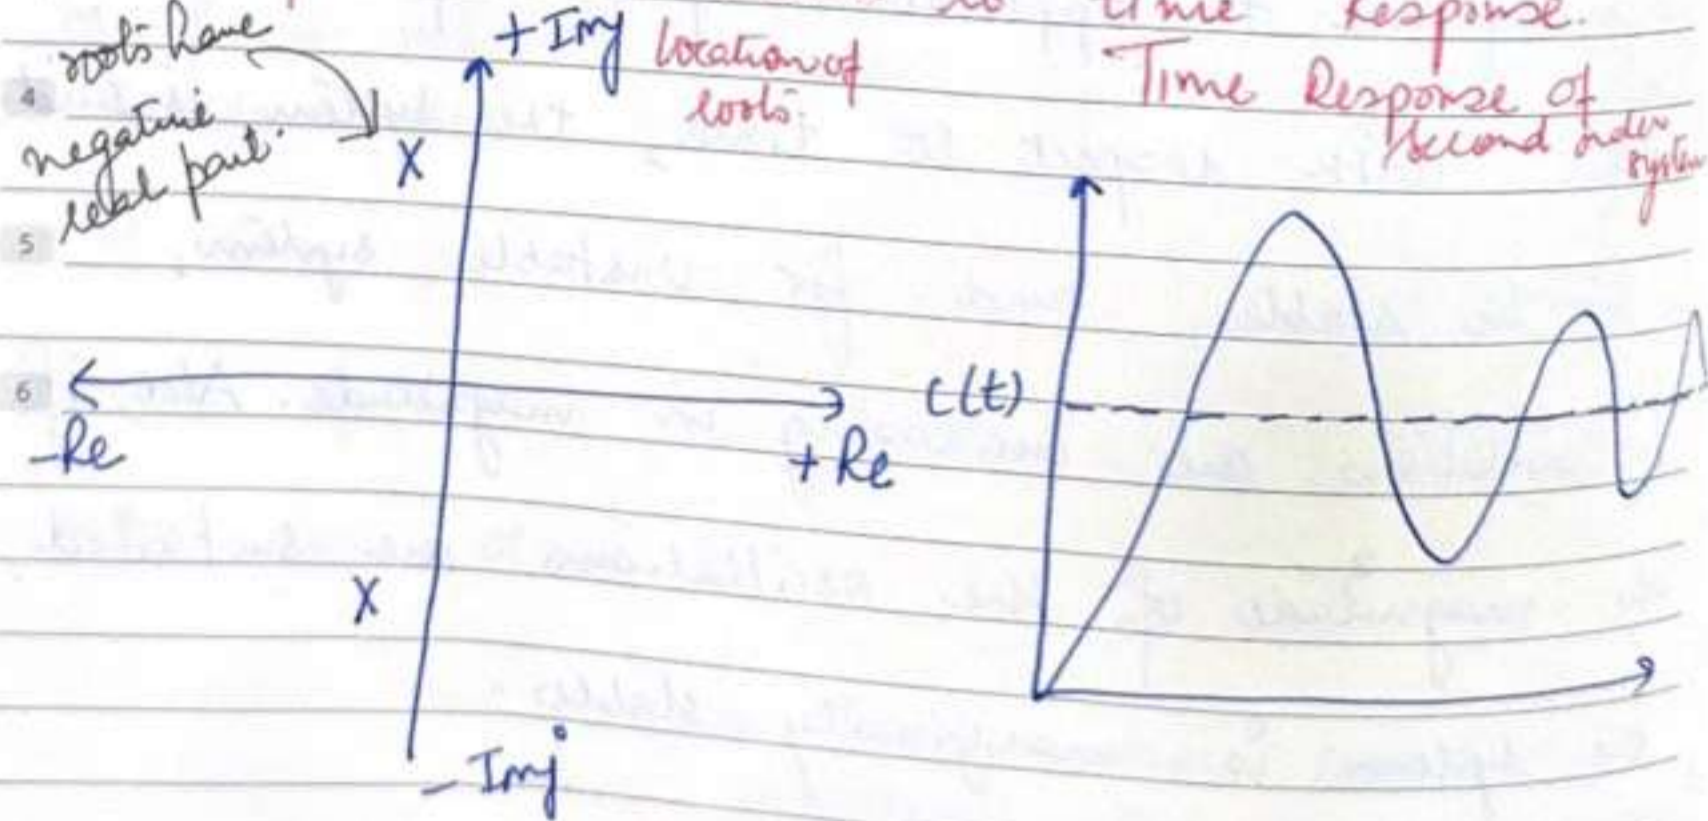 to time Response.
roots have
negative
real part.
+Imj
location of
roots.
Time Response of
second order
system
4
X
5
6
-Re
+Re
c(t)
X
-Imj